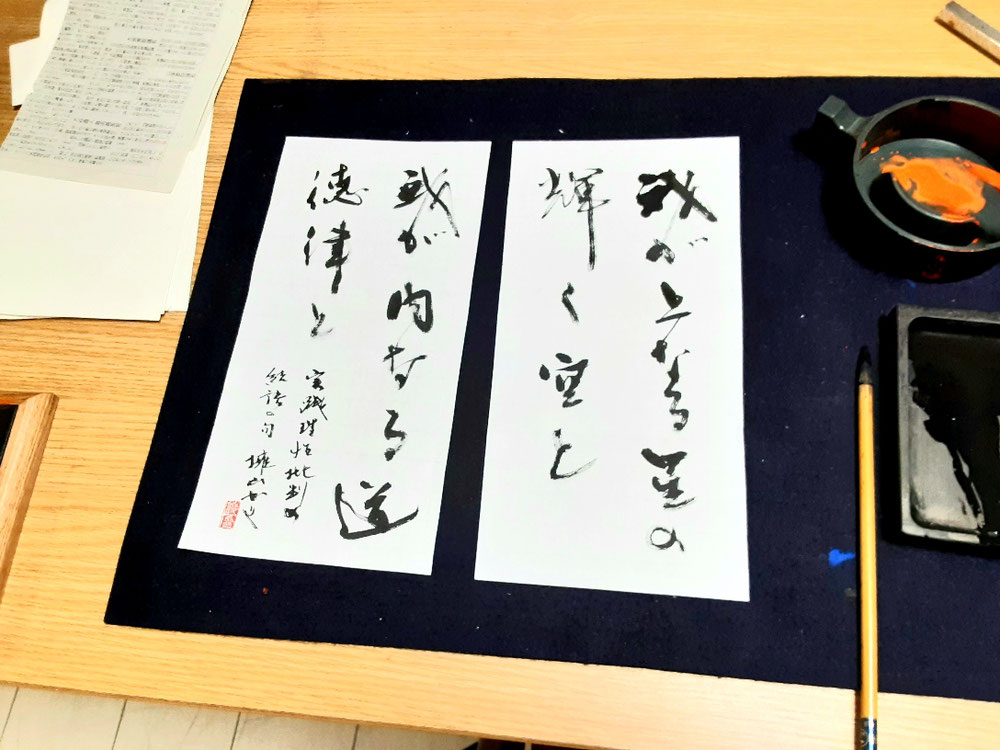 我が上なる星の
輝く空と
我が内なる道
徳律と
実践理性批判の
結語の句